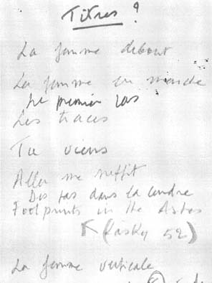 Titres ?
La femme debout
La femme en marche
Le premier pas
Les traces
Tu viens
Aller me suffit
Des pas dans la cendre
Footprints in the Ashes
(Lasky 52)
La femme verticale